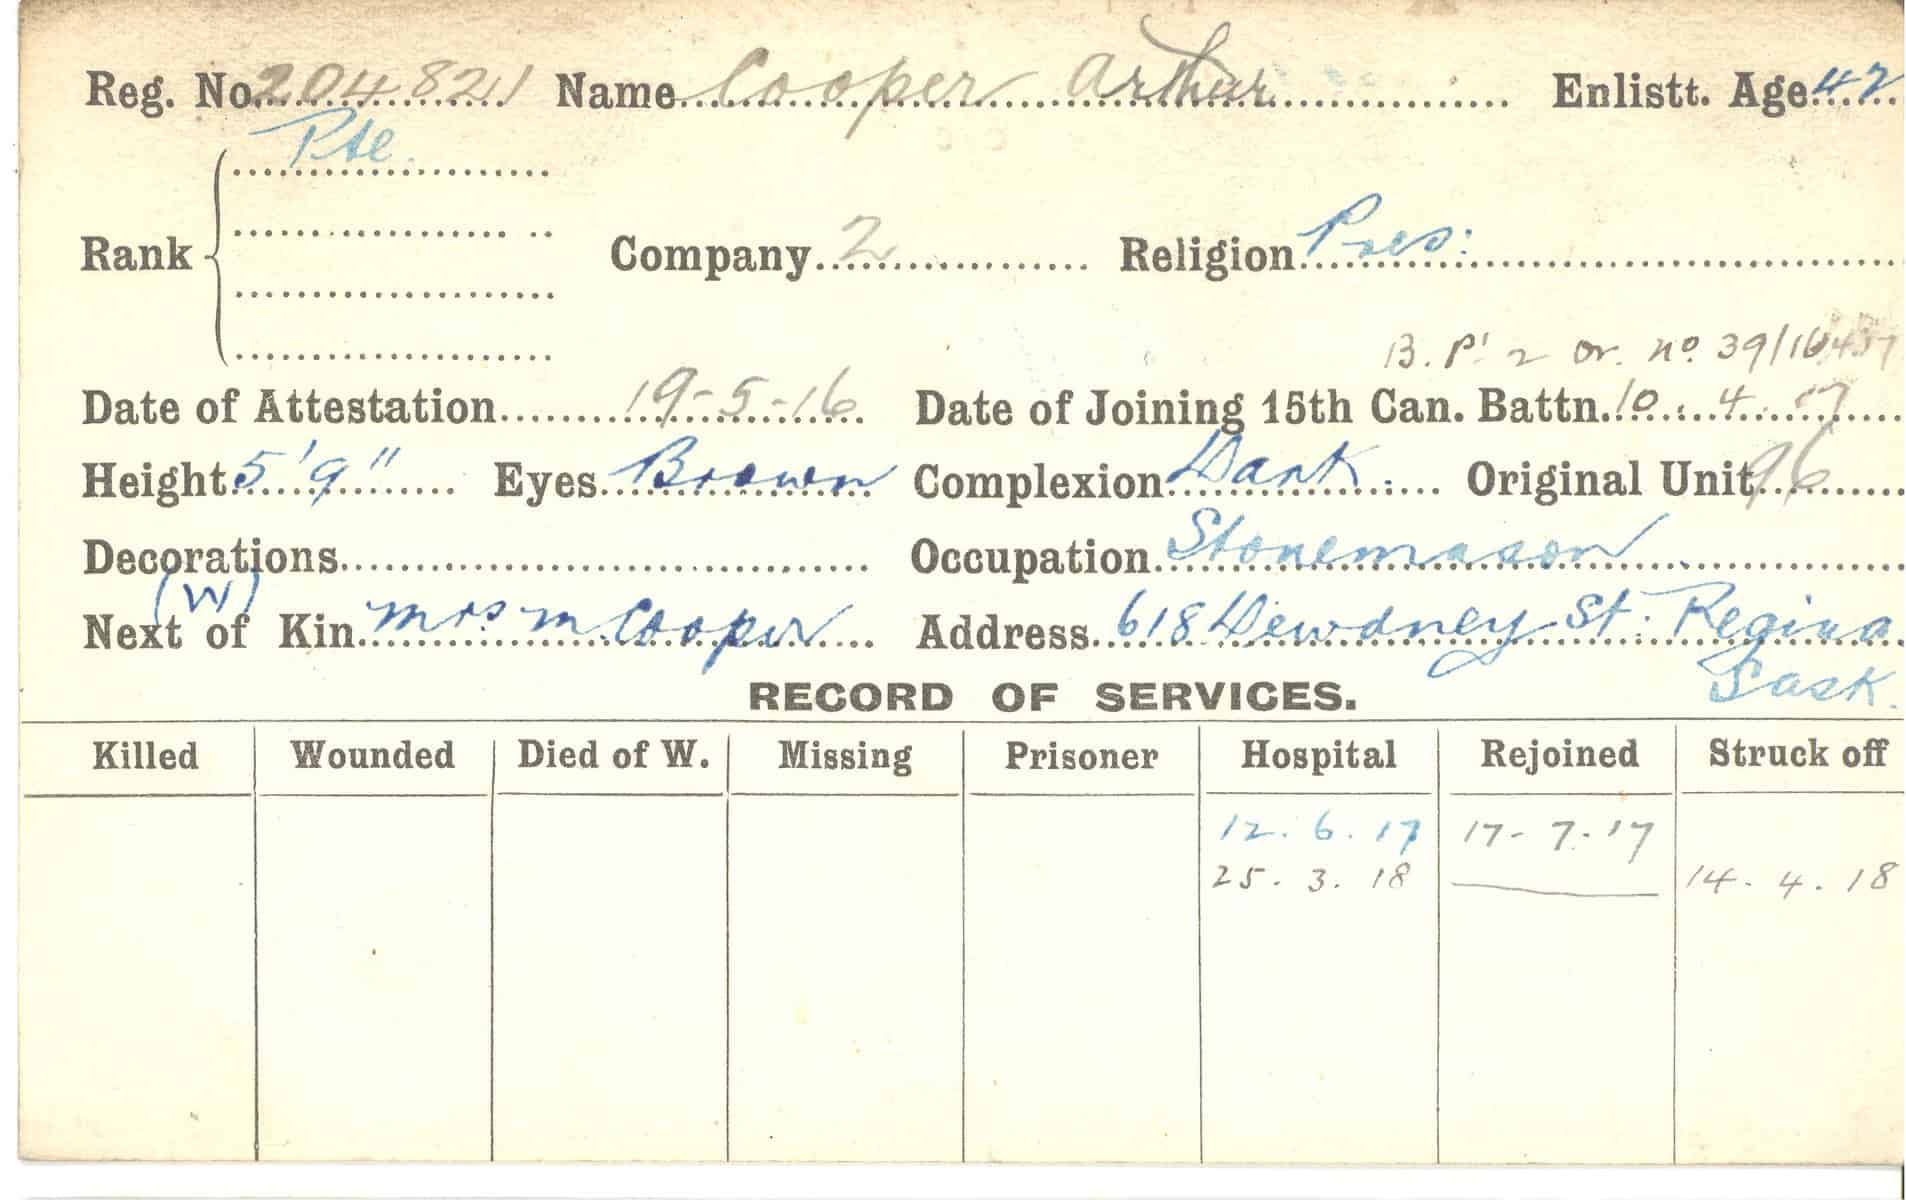 Reg. No. 204821 Name Cooper Arthur Enlistt. Age 42
Pte.
Rank Company 2 Religion Pres:
B. P! 2 Or. No 39/16.4.17
Date of Attestation 19-5-16 Date of Joining 15th Can. Battn. 10. 4. 17
Height 5'9" Eyes Brown Complexion Dark Original Unit 96
Decorations Occupation Stonemason
(W)
Next of Kin Mrs M Cooper Address 618 Dewdney St: Regina
Sask.
RECORD OF SERVICES.
Killed Wounded Died of W. Missing Prisoner Hospital Rejoined Struck off
12. 6. 17 17-7-17
25. 3. 18 14. 4. 18